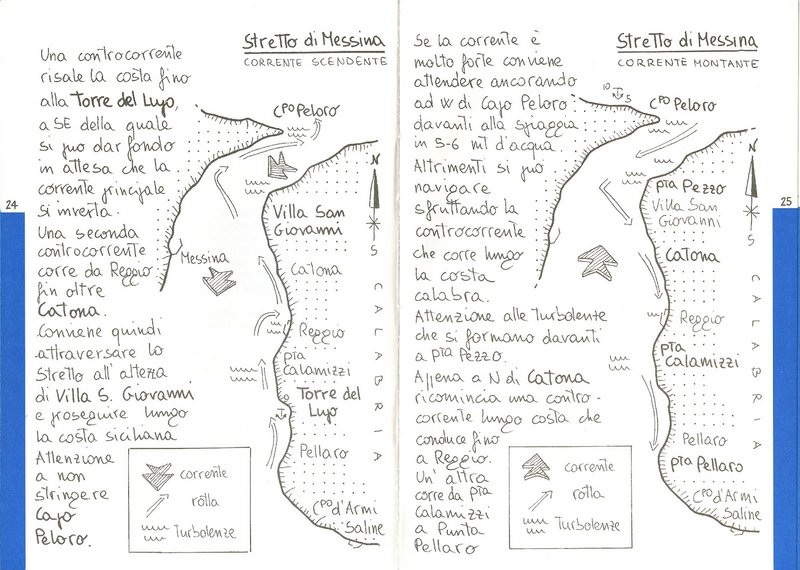 24
Stretto di Messina
CORRENTE SCENDENTE
Una controcorrente
risale la costa fino
alla Torre del Lupo,
a SE della quale
si può dar fondo
in attesa che la
corrente principale
si inverta.
Una seconda
controcorrente
corre da Reggio
fin oltre
Catona.
Conviene quindi
attraversare lo
Stretto all'altezza
di Villa S. Giovanni
e proseguire lungo
la costa siciliana
Attenzione
a non
stringere
Capo
Peloro.
Cpo Peloro
N
S
Villa San
Giovanni
Messina
Catona
Reggio
pta
Calamizzi
Torre del
Lupo
Pellaro
Cpo d'Armi
Saline
CALABRIA
corrente
rotta
Turbolenze
25
Stretto di Messina
CORRENTE MONTANTE
Se la corrente è
molto forte conviene
attendere ancorando
ad W di Capo Peloro
davanti alla spiaggia
in 5-6 mt d'acqua.
Altrimenti si può
navigare
sfruttando la
controcorrente
che corre lungo
la costa
calabra.
Attenzione alle Turbolenze
che si formano davanti
a pta Pezzo.
Appena a N di Catona
ricomincia una contro-
corrente lungo costa che
conduce fino
a Reggio.
Un'altra
corre da pta
Calamizzi
a Punta
Pellaro
10
5
Cpo Peloro
N
S
pta Pezzo
Villa San
Giovanni
Catona
Reggio
pta
Calamizzi
Pellaro
pta Pellaro
Cpo d'Armi
Saline
CALABRIA
corrente
rotta
Turbolenze